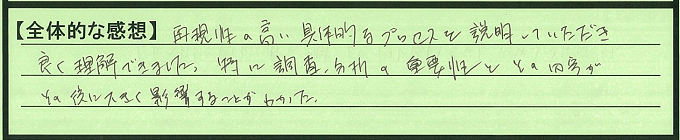 【全体的な感想】再現性の高い具体的なプロセスを説明していただき
良く理解できました。特に調査、分析の重要性とその内容が
その後に大きく影響することがわかった。